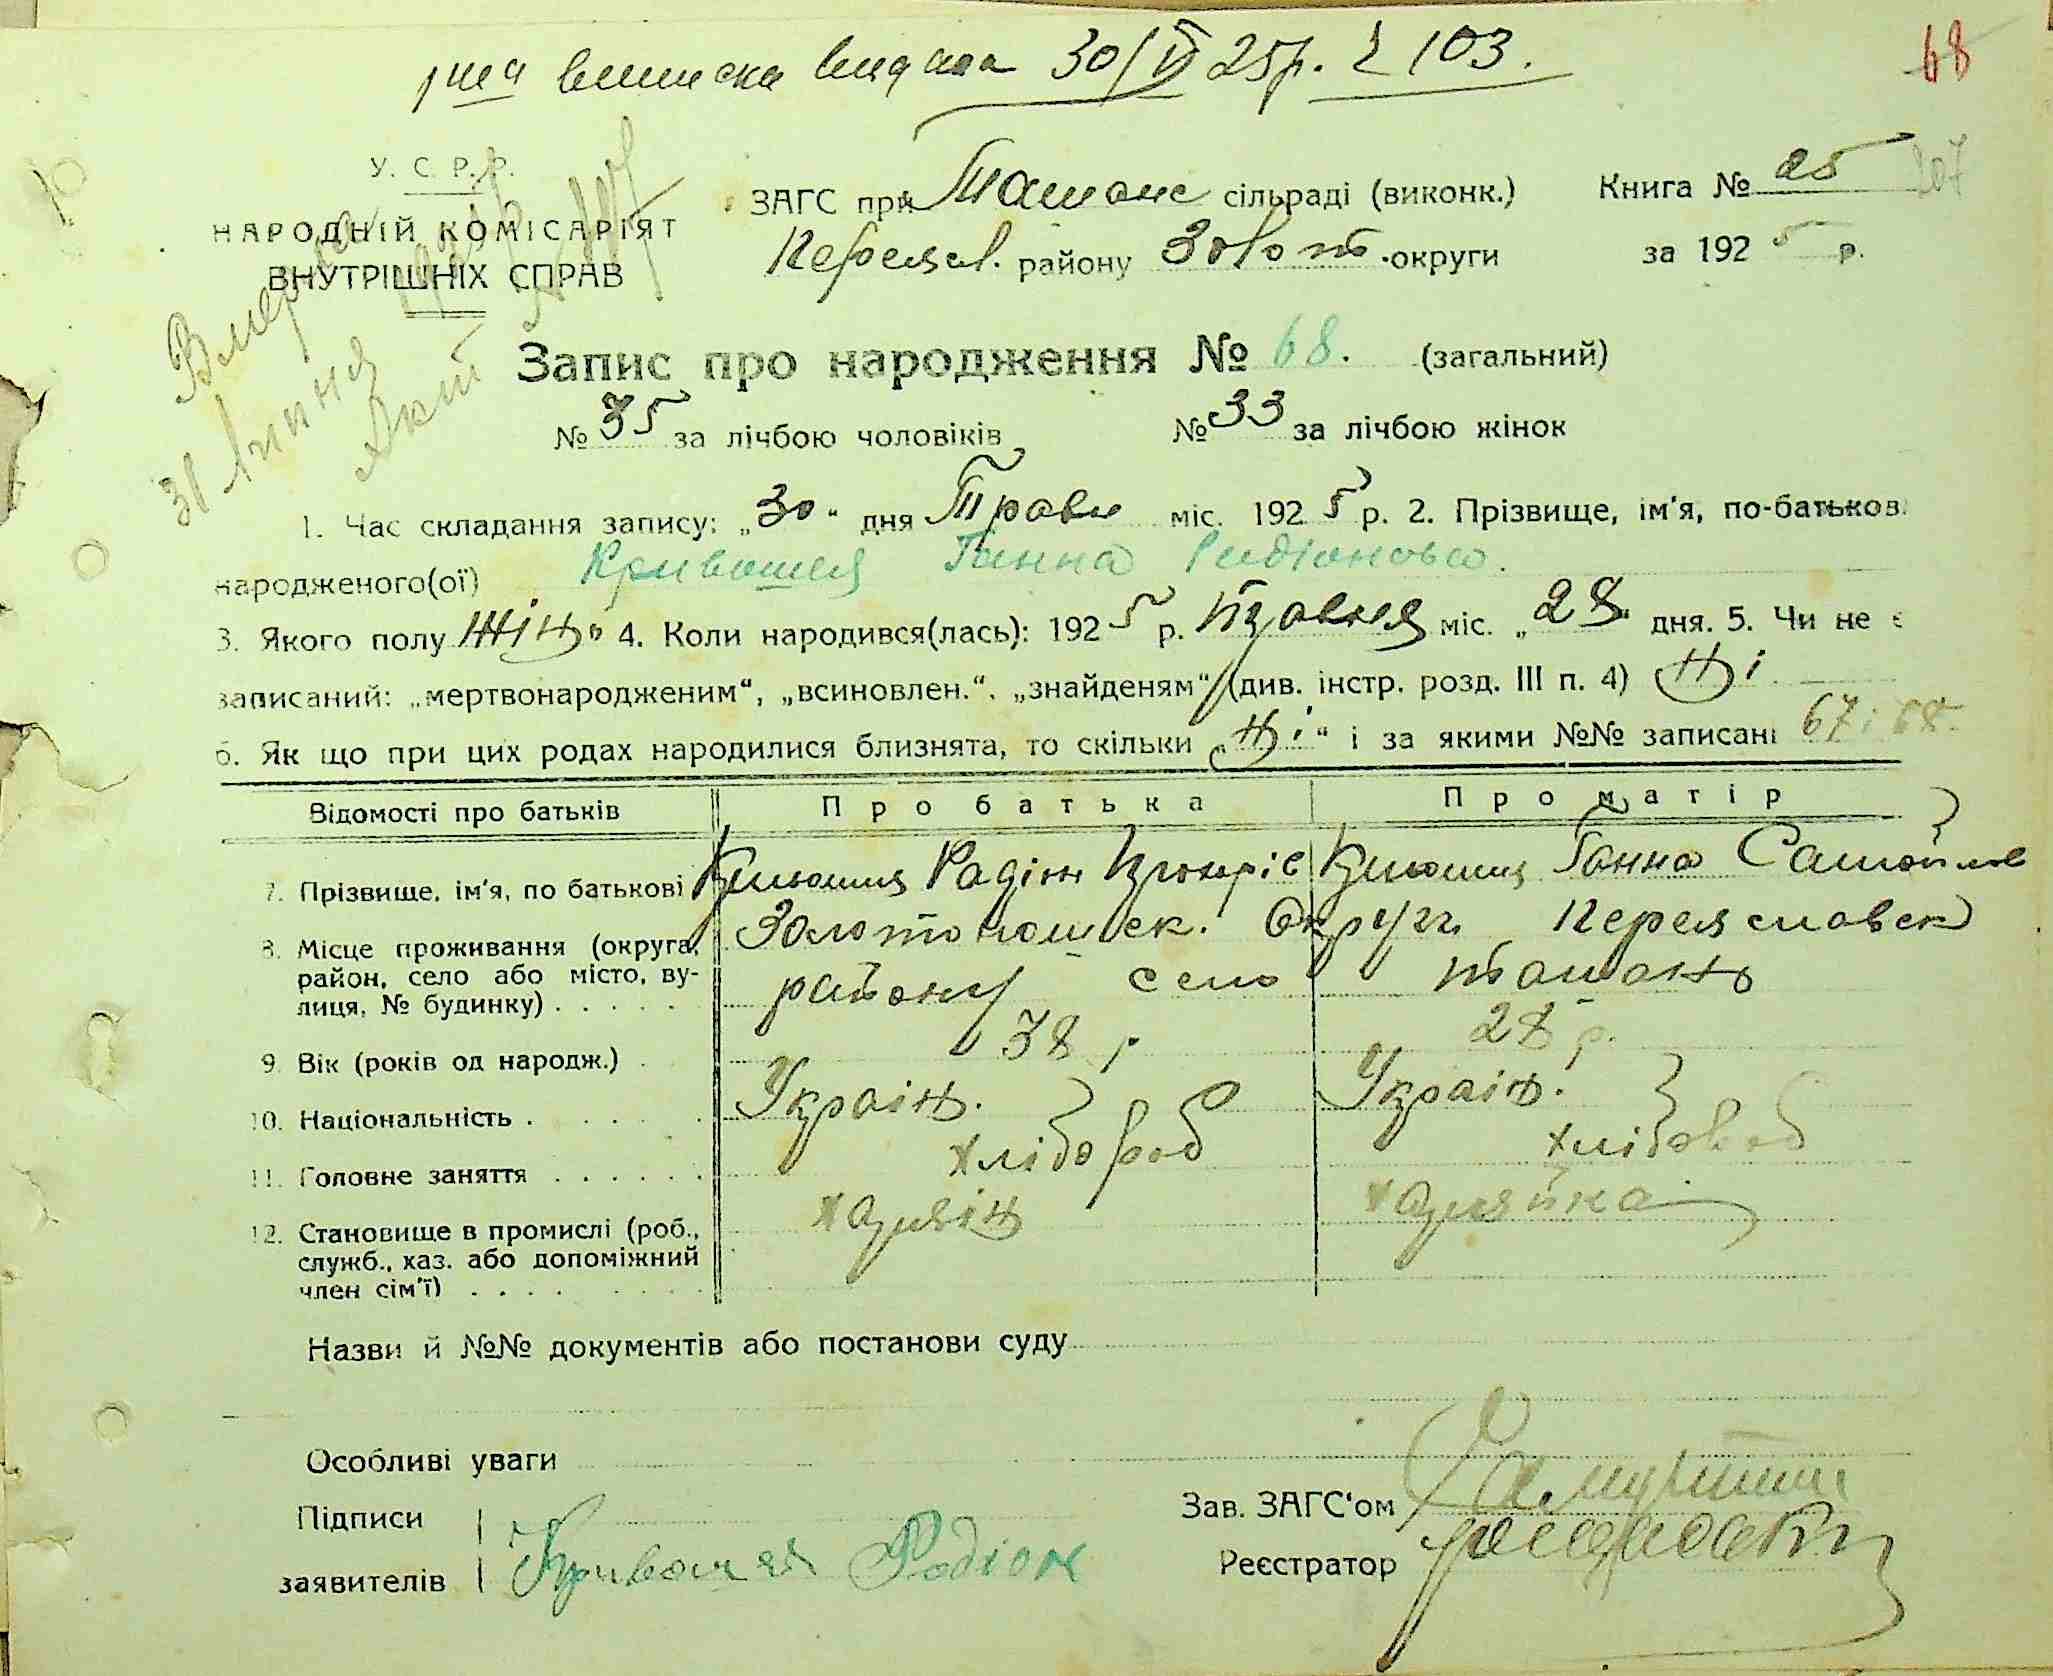 виписка видана 30/VI 25р. 103.
68
У. С. Р. Р.
НАРОДНІЙ КОМІСАРІЯТ
ВНУТРІШНІХ СПРАВ
ЗАГС при Ташанс сільраді (виконк.)
Переясл. району Золот округи
Книга № 25 207
за 1925 р.
Вмерла
31 липня
Акт
Запис про народження № 68. (загальний)
№ 35 за лічбою чоловіків № 33 за лічбою жінок
1. Час складання запису: „30“ дня Травн міс. 1925 р. 2. Прізвище, ім'я, по-батьков
народженого(ої) Кривошея Ганна Радіоновна.
3. Якого полу жін. 4. Коли народився(лась): 1925 р. травня міс. „28“ дня. 5. Чи не є
записаний: „мертвонародженим“, „всиновлен.“, „знайденям“ (див. інстр. розд. III п. 4) Ні
6. Як що при цих родах народилися близнята, то скільки „Ні“ і за якими №№ записані 67 і 68.
Відомості про батьків Про батька Про матір
7. Прізвище, ім'я, по батькові Кривошия Радіон Кривошия Ганна Самойлов
8. Місце проживання (округа, район, село або місто, вулиця, № будинку) Золотоношек. Округи Переяславск
району село ташань
9. Вік (років од народж.) 38 р 28 р.
10. Національність Україн. Україн.
11. Головне заняття хлібороб хлібороб
12. Становище в промислі (роб., служб., хаз. або допоміжний член сім'ї) хазяін хазяйка
Назви й №№ документів або постанови суду
Особливі уваги
Підписи
заявителів Кривошея Родіон
Зав. ЗАГС'ом
Реєстратор